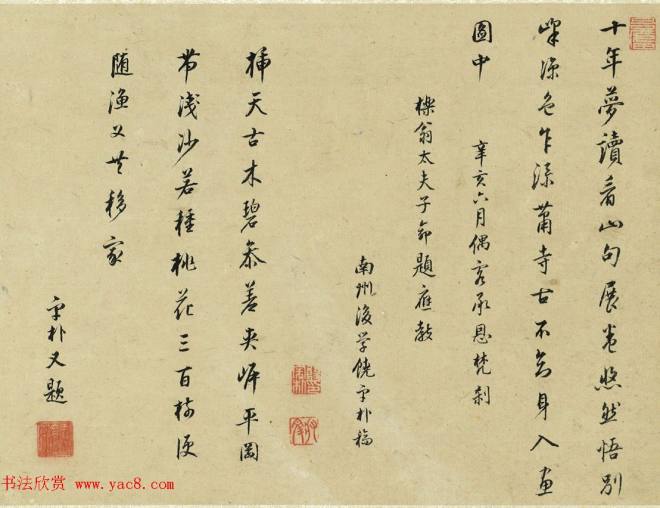 十年夢讀看山句展卷悠然悟別
峰深色乍添蕭寺古不知身入畫
圖中 辛亥六月偶客承恩梵刹
樸翁太夫子命題應教
南州後学饒宇朴稿
插天古木碧參差夾岍平岡
帶淺沙若種桃花三百樹便
随漁父共移家
宇朴又題
书法欣赏 www.yac8.com